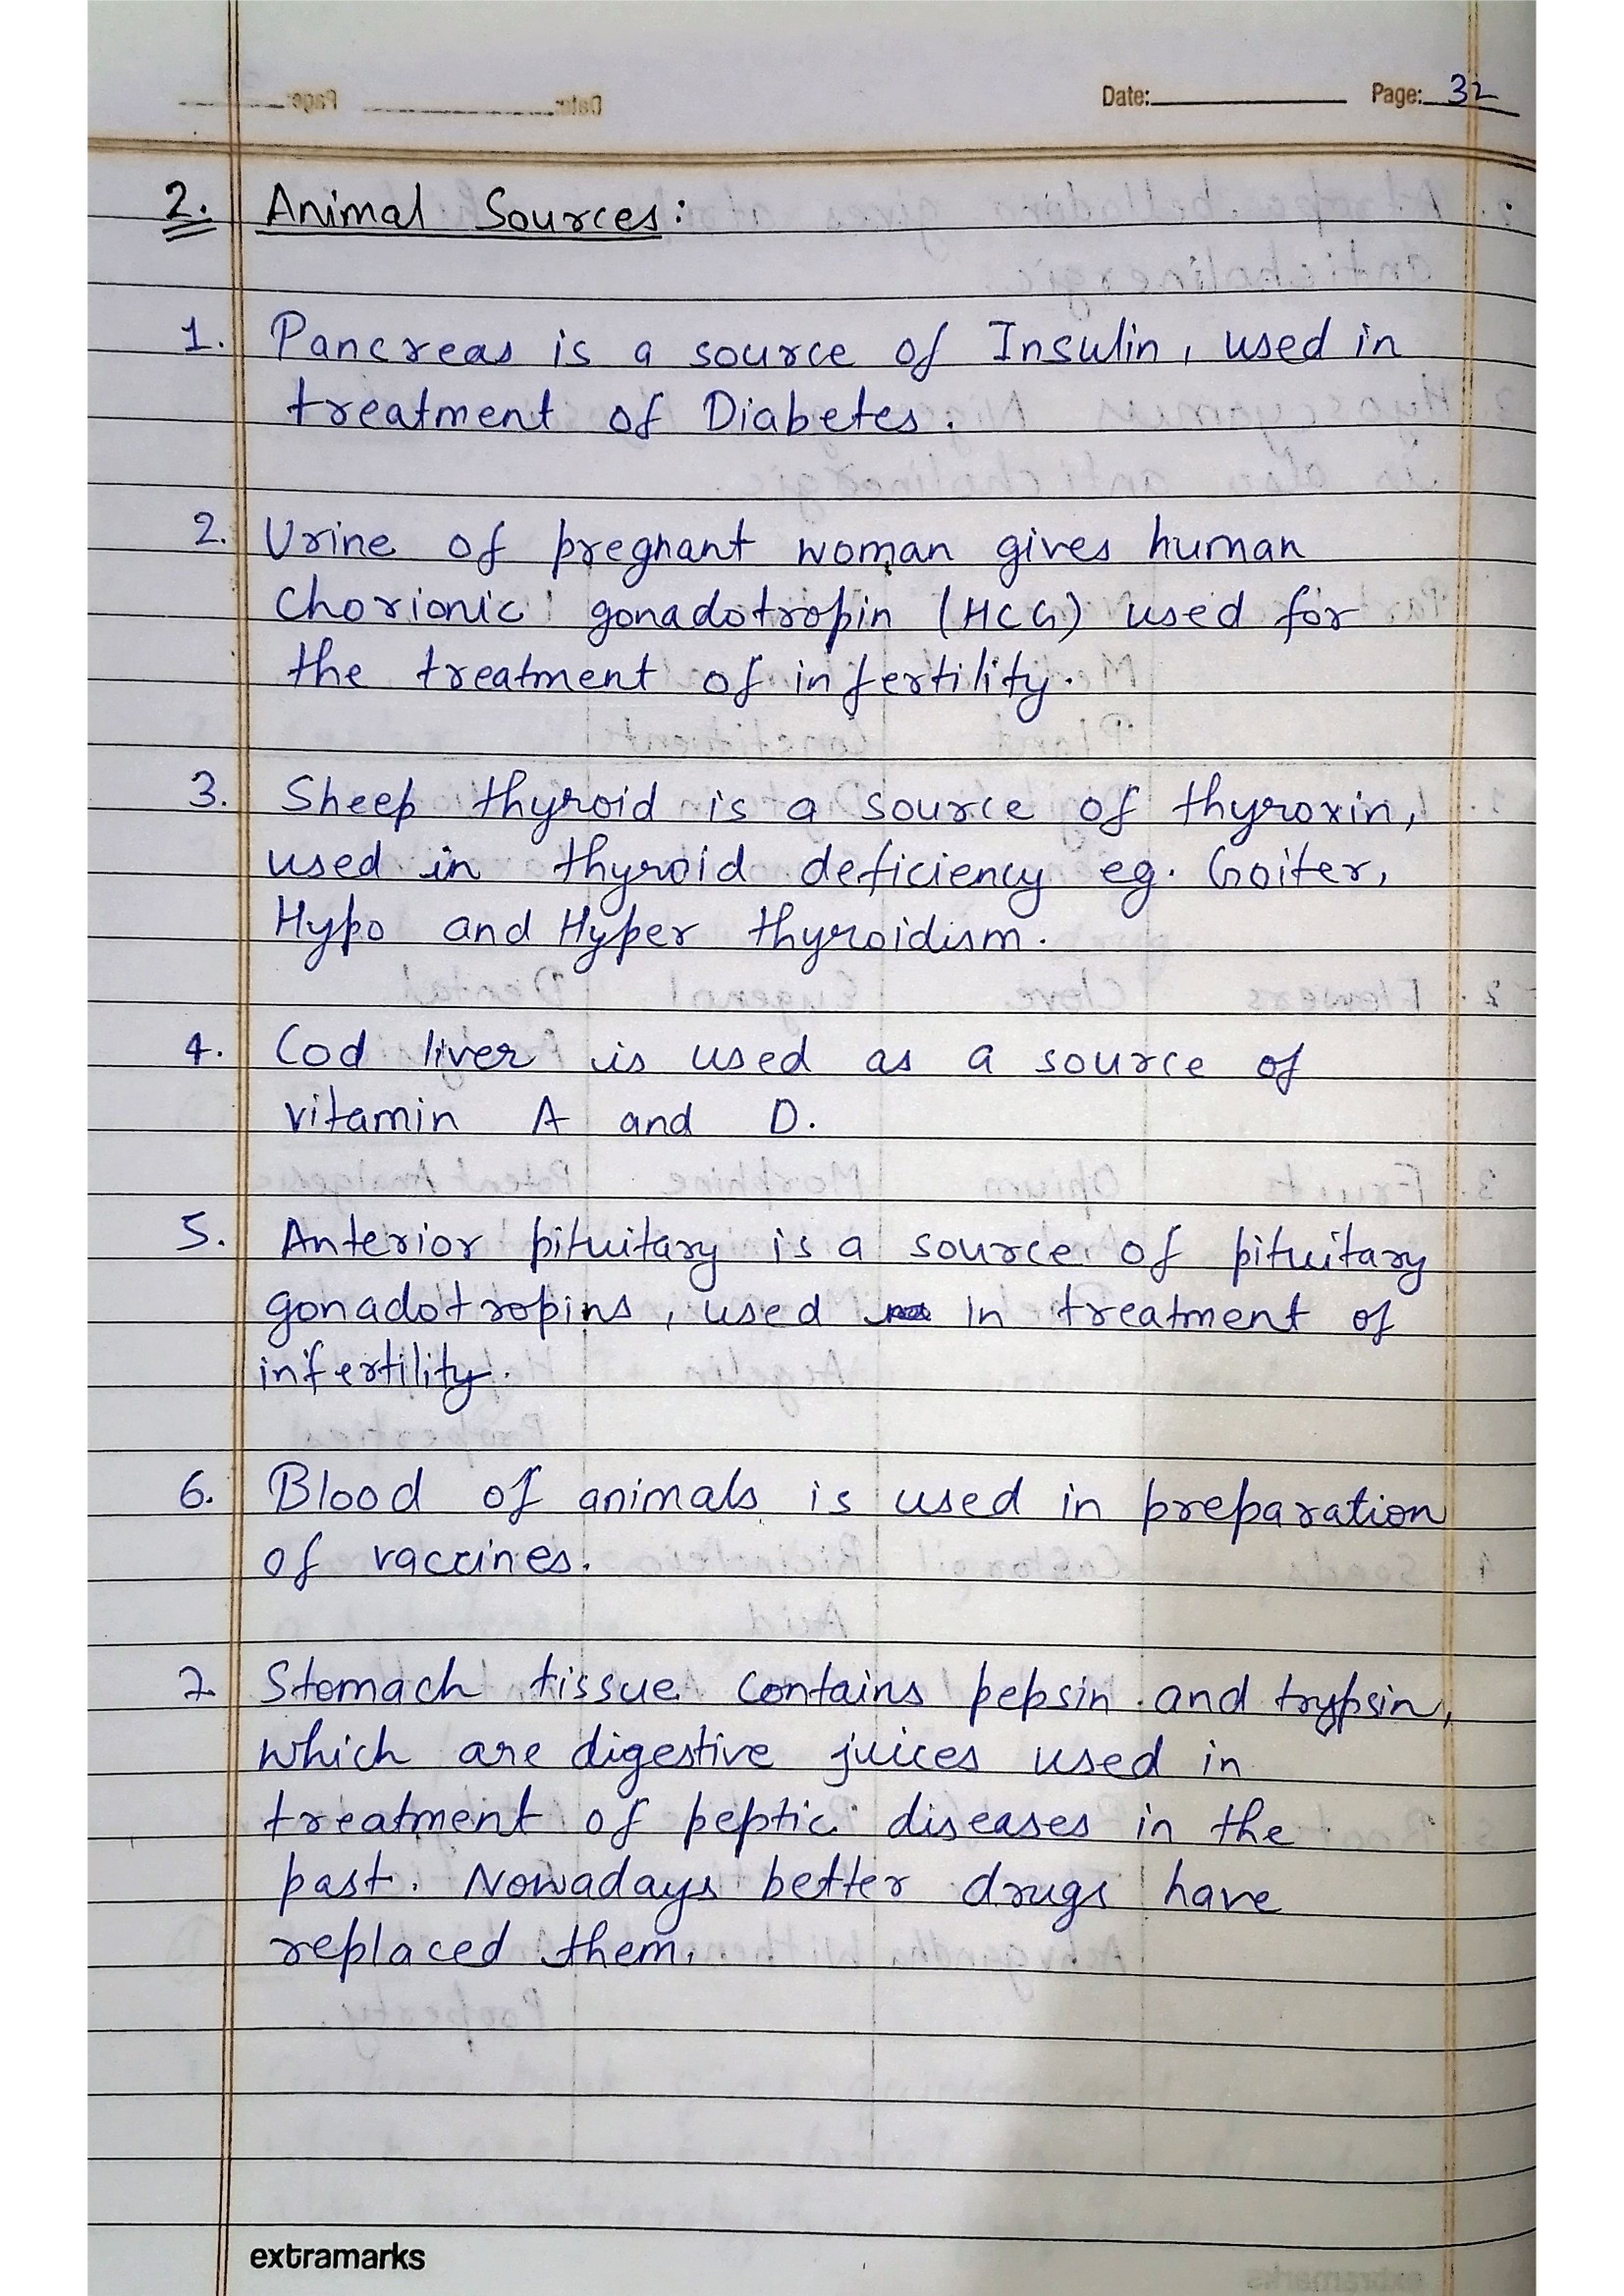 Date: Page: 32
2. Animal Sources:
1. Pancreas is a source of Insulin, used in
treatment of Diabetes.
2. Urine of pregnant woman gives human
Chorionic gonadotropin (HCG) used for
the treatment of infertility.
3. Sheep thyroid is a source of thyroxin,
used in thyroid deficiency eg. Goiter,
Hypo and Hyper thyroidism.
4. Cod liver is used as a source of
vitamin A and D.
5. Anterior pituitary is a source of pituitary
gonadotropins, used in treatment of
infertility.
6. Blood of animals is used in preparation
of vaccines.
7. Stomach tissue contains pepsin and trypsin,
which are digestive juices used in
treatment of peptic diseases in the
past. Nowadays better drugs have
replaced them.
extramarks